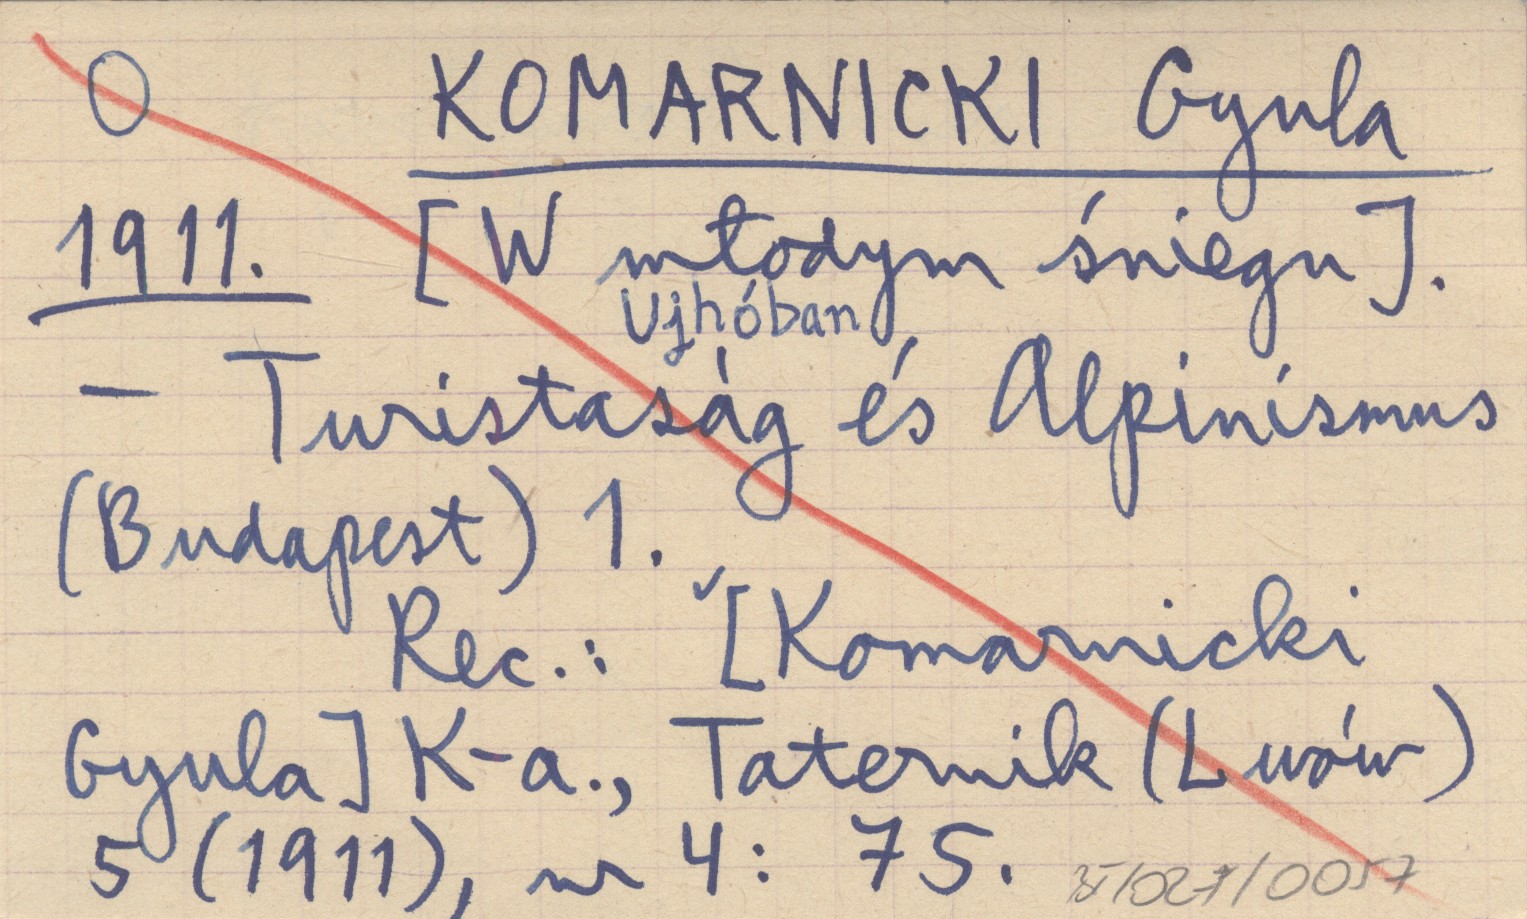 O KOMARNICKI Gyula
1911. [W młodym śniegu].
Ujhóban
- Turistaság és Alpinísmus
(Budapest) 1.
Rec.: [Komarnicki
Gyula] K-a., Taternik (Lwów)
5 (1911), nr 4: 75.
/027/0057